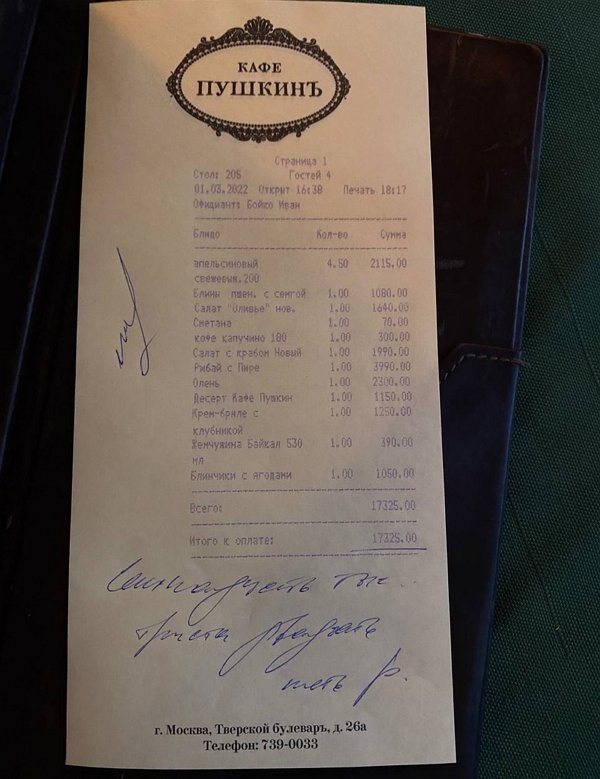 КАФЕ
ПУШКИНЪ
Страница 1
Стол: 205 Гостей 4
01.03.2022 Открыт 16:38 Печать 18:17
Официант: Бойко Иван
Блюдо Кол-во Сумма
апельсиновый 4.50 2115.00
свежевыж.200
Блины пшен. с семгой 1.00 1080.00
Салат "Оливье" нов. 1.00 1640.00
Сметана 1.00 70.00
кофе капучино 180 1.00 300.00
Салат с крабом Новый 1.00 1990.00
Рибай с Пюре 1.00 3990.00
Олень 1.00 2300.00
Десерт Кафе Пушкин 1.00 1150.00
Крем-брюле с 1.00 1250.00
клубникой
Жемчужина Байкал 530 1.00 390.00
мл
Блинчики с ягодами 1.00 1050.00
Всего: 17325.00
Итого к оплате: 17325.00
Семнадцать тыс..
триста двадцать
пять р.
г. Москва, Тверской булеваръ, д. 26а
Телефон: 739-0033